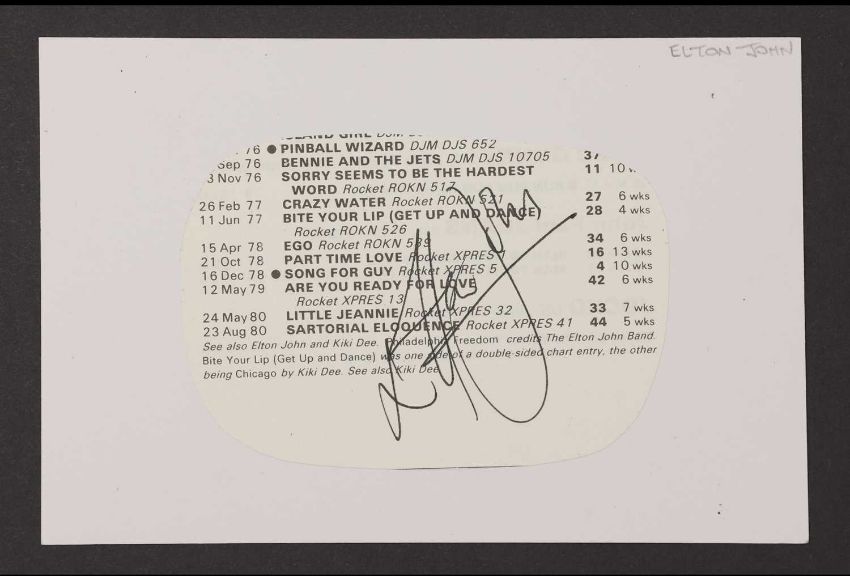 ELTON JOHN
76 ● PINBALL WIZARD DJM DJS 652
Sep 76 BENNIE AND THE JETS DJM DJS 10705 37
3 Nov 76 SORRY SEEMS TO BE THE HARDEST 11 10
WORD Rocket ROKN 517
26 Feb 77 CRAZY WATER Rocket ROKN 521 27 6 wks
11 Jun 77 BITE YOUR LIP (GET UP AND DANCE) 28 4 wks
Rocket ROKN 526
15 Apr 78 EGO Rocket ROKN 539 34 6 wks
21 Oct 78 PART TIME LOVE Rocket XPRES 1 16 13 wks
16 Dec 78 ● SONG FOR GUY Rocket XPRES 5 4 10 wks
12 May 79 ARE YOU READY FOR LOVE 42 6 wks
Rocket XPRES 13
24 May 80 LITTLE JEANNIE Rocket XPRES 32 33 7 wks
23 Aug 80 SARTORIAL ELOQUENCE Rocket XPRES 41 44 5 wks
See also Elton John and Kiki Dee. Philadelphia Freedom credits The Elton John Band.
Bite Your Lip (Get Up and Dance) was one side of a double-sided chart entry, the other
being Chicago by Kiki Dee. See also Kiki Dee.
Elton John